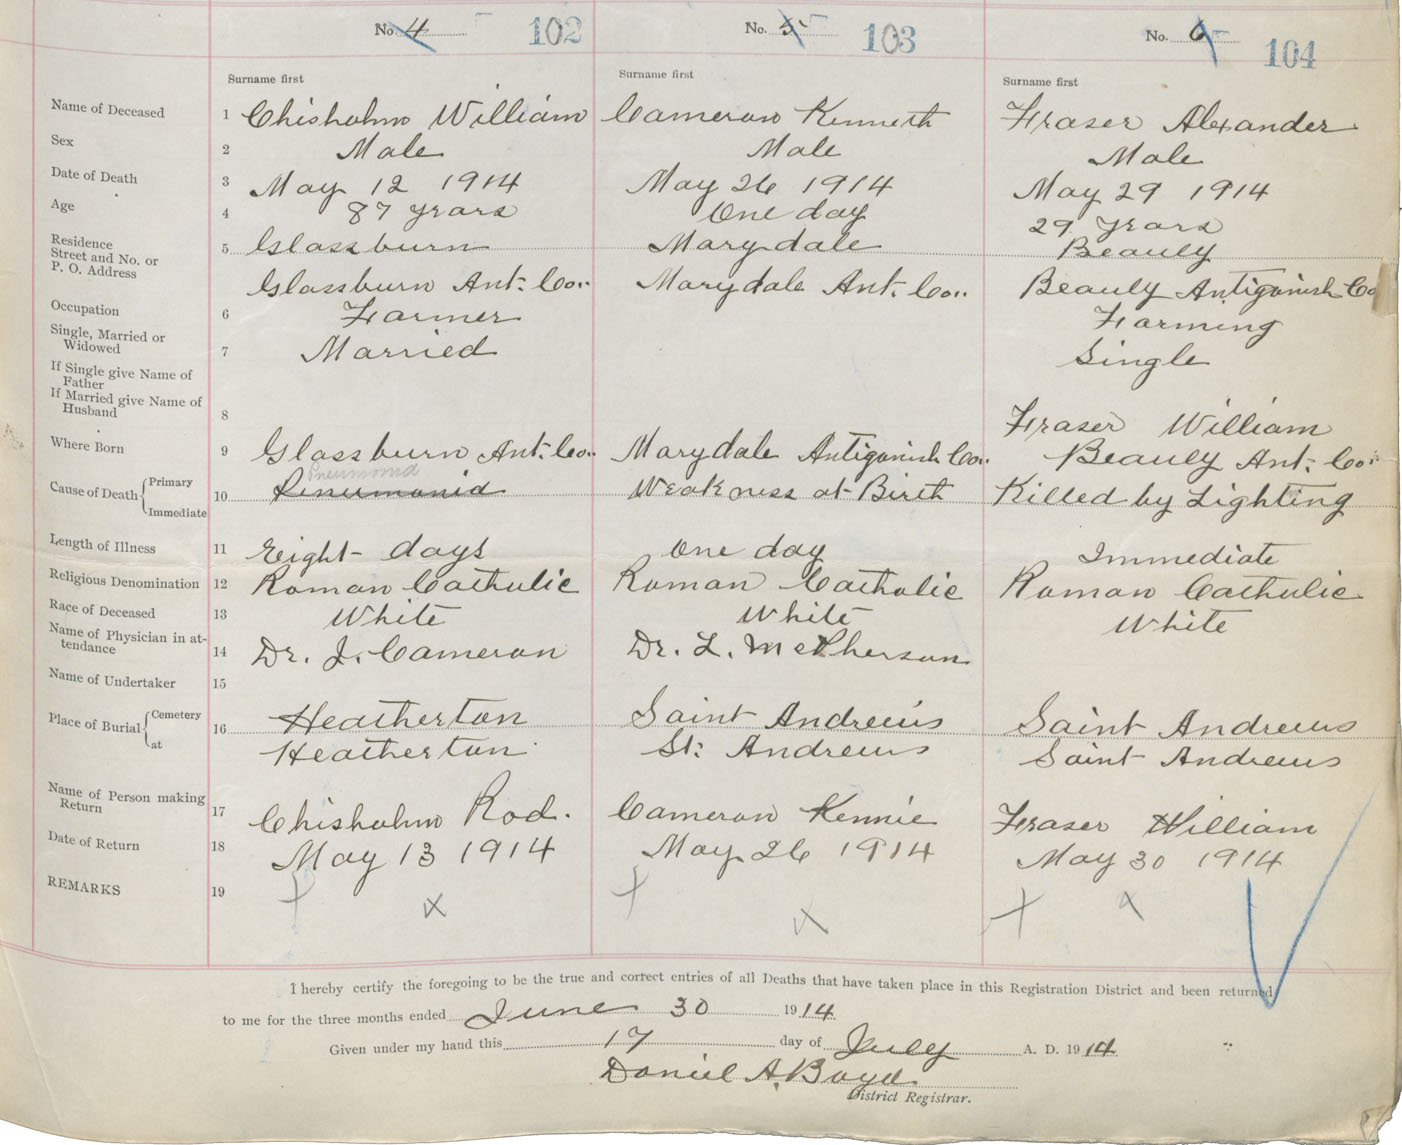 No. 4 102 No. 5 103 No. 6 104
Surname first Surname first Surname first
Name of Deceased 1 Chisholm William Cameron Kenneth Fraser Alexander
Sex 2 Male Male Male
Date of Death 3 May 12 1914 May 26 1914 May 29 1914
Age 4 87 years One day 29 years
Residence Street and No. or P. O. Address 5 Glassburn Marydale Beauly
Glassburn Ant. Co.. Marydale Ant. Co.. Beauly Antigonish Co
Occupation 6 Farmer Farming
Single, Married or Widowed 7 Married Single
If Single give Name of Father
If Married give Name of Husband 8 Fraser William
Where Born 9 Glassburn Ant. Co.. Marydale Antigonish Co.. Beauly Ant. Co..
Pneumonia
Cause of Death { Primary Immediate 10 Pneumonia Weakness at Birth Killed by Lighting
Length of Illness 11 Eight days One day Immediate
Religious Denomination 12 Roman Catholic Roman Catholic Roman Catholic
Race of Deceased 13 White White White
Name of Physician in attendance 14 Dr. J. Cameron Dr. L. McPherson
Name of Undertaker 15
Place of Burial { Cemetery 16 Heatherton Saint Andrews Saint Andrews
at Heatherton St. Andrews Saint Andrews
Name of Person making Return 17 Chisholm Rod. Cameron Kennie Fraser William
Date of Return 18 May 13 1914 May 26 1914 May 30 1914
REMARKS 19
I hereby certify the foregoing to be the true and correct entries of all Deaths that have taken place in this Registration District and been returned
to me for the three months ended June 30 1914
Given under my hand this 17 day of July A. D. 1914
Daniel A. Boyd
District Registrar.